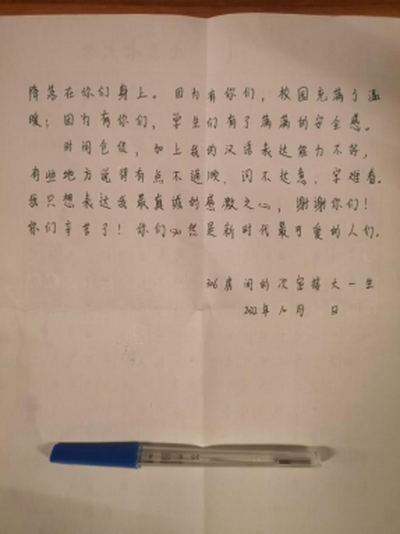 降落在你们身上。因为有你们，校园充满了温
暖；因为有你们，学生们有了满满的安全感。
时间仓促，加上我的汉语表达能力不好，
有些地方说得有点不通顺，词不达意，字难看。
我只想表达我最真诚的感激之心，谢谢你们！
你们辛苦了！你们必然是新时代最可爱的人们。
306房间的次密接大一生
2022年10月 日